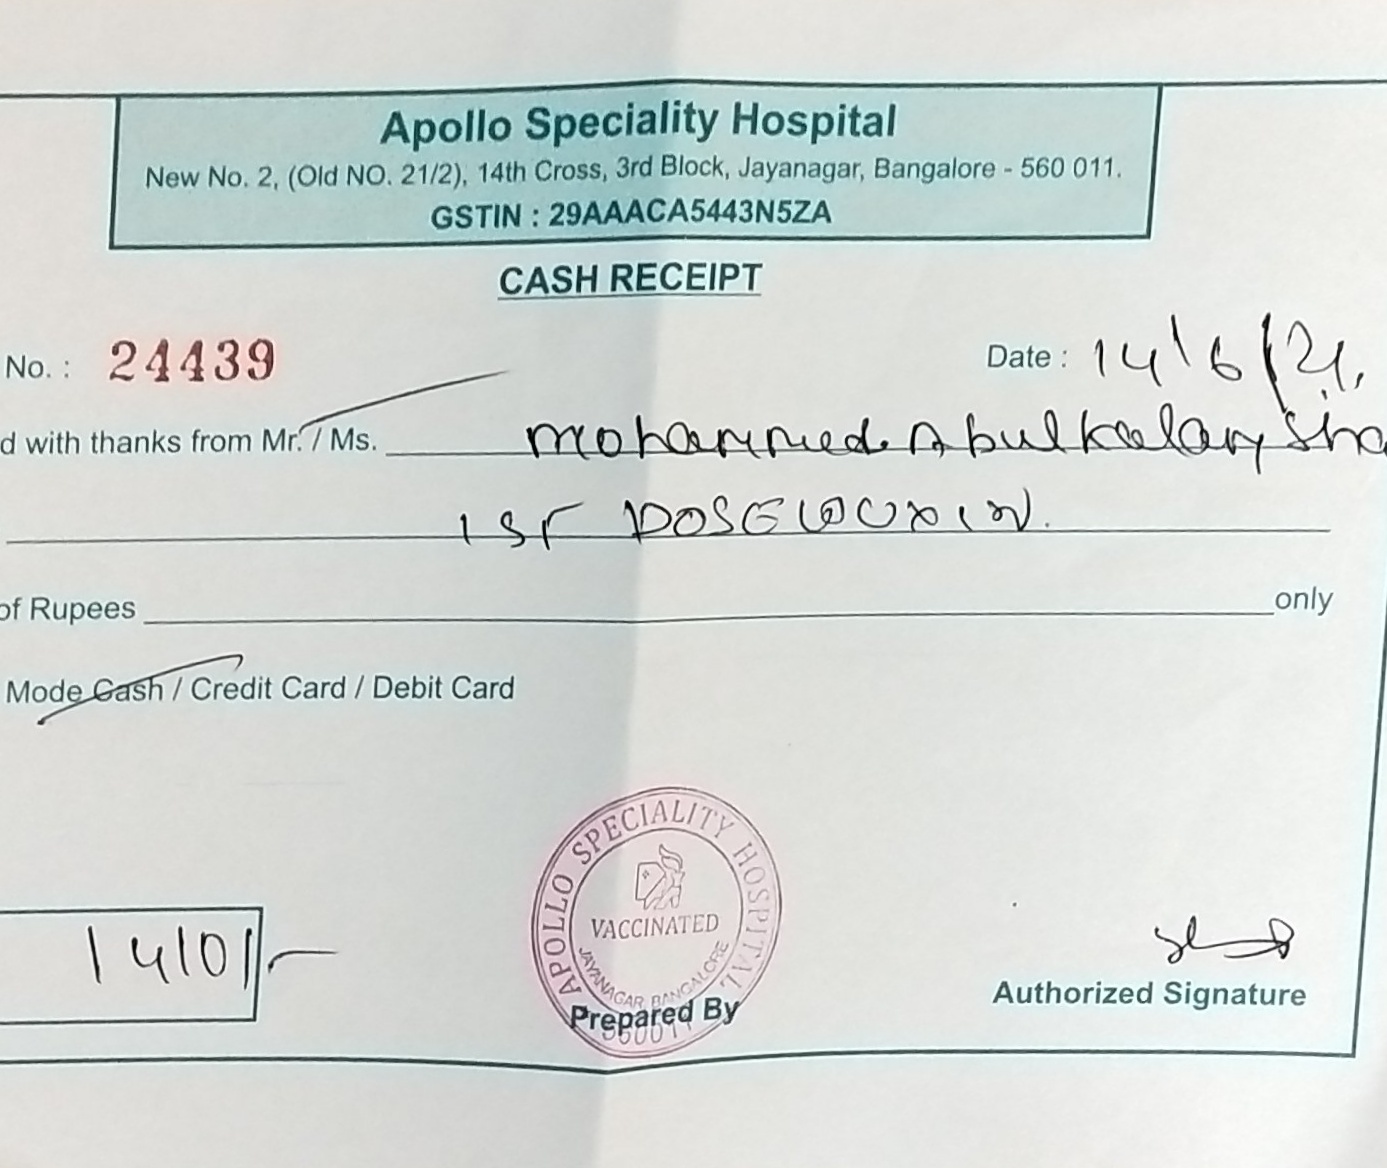 Apollo Speciality Hospital
New No. 2, (Old NO. 21/2), 14th Cross, 3rd Block, Jayanagar, Bangalore - 560 011.
GSTIN : 29AAACA5443N5ZA
CASH RECEIPT
No. : 24439 Date : 14\6/21.
d with thanks from Mr. / Ms. Mohammed Abulkalam Sha
1ST DOSE
of Rupees only
Mode Cash / Credit Card / Debit Card
APOLLO SPECIALITY HOSPITAL
VACCINATED
JAYANAGAR, BANGALORE
1410/-
Prepared By
Authorized Signature